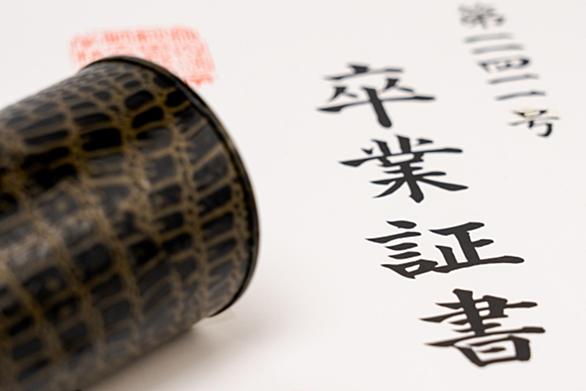 第二四二号
卒業証書